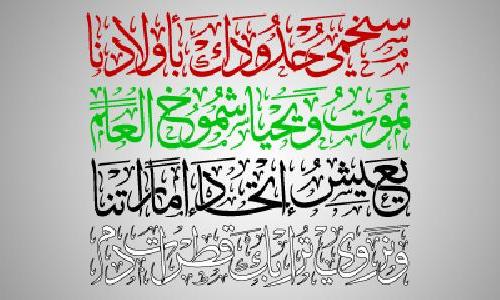 سنحمي حدودك بأولادنا
نموت ويحيا شموخ العلم
يعيش إتحاد إماراتنا
ونروي ترابك قطرات دم